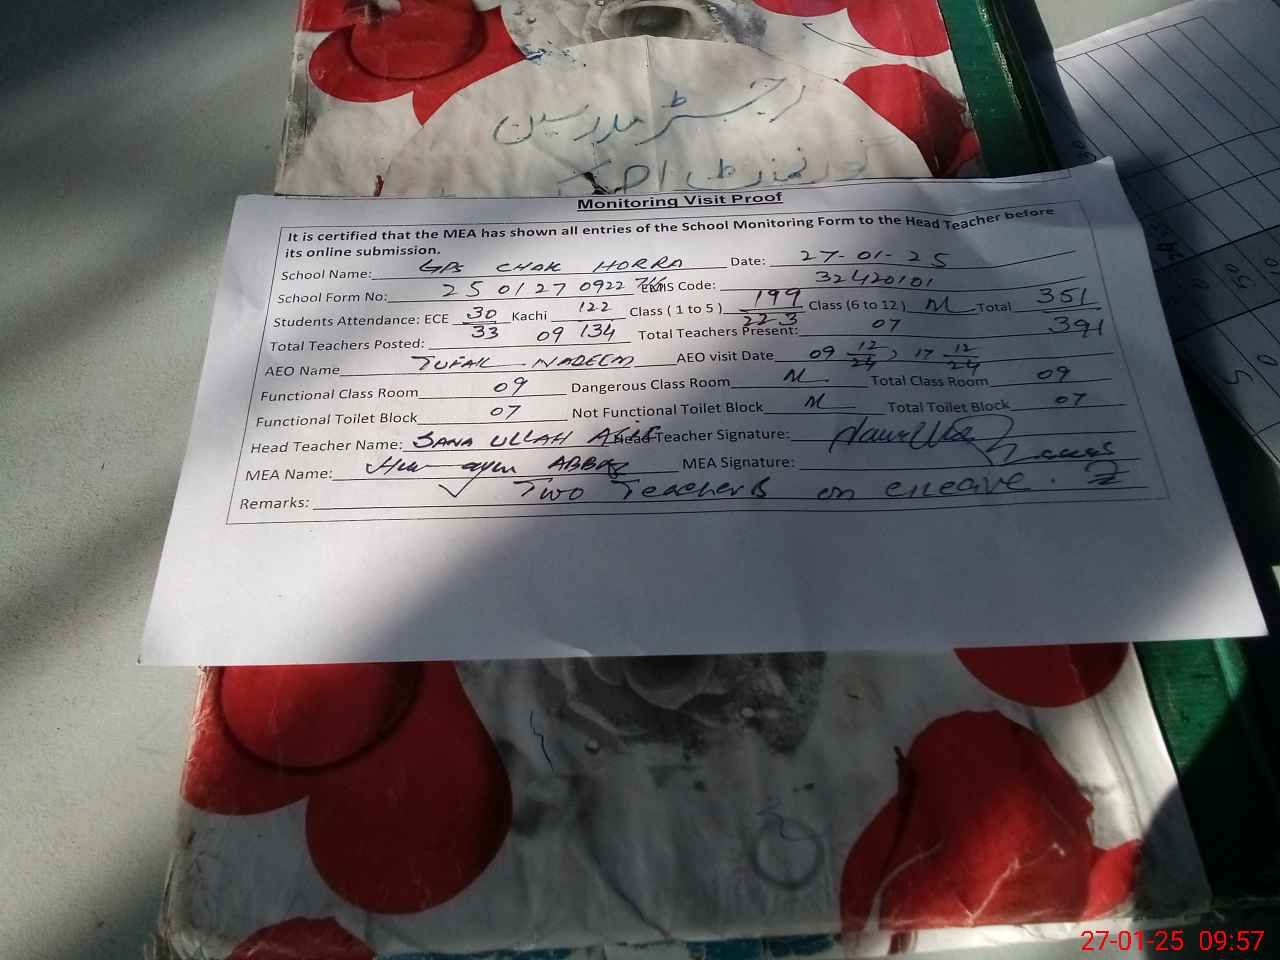 رجسٹر مدرسین
گورنمنٹ
Monitoring Visit Proof
It is certified that the MEA has shown all entries of the School Monitoring Form to the Head Teacher before
its online submission.
School Name: GPS CHAK HORRA Date: 27-01-25
School Form No: 250127 0922 EMIS Code: 32420101
Students Attendance: ECE 30/33 Kachi 122/134 Class ( 1 to 5 ) 199/223 Class (6 to 12 ) Total 351/391
Total Teachers Posted: 09 Total Teachers Present: 07
AEO Name TUFAIL NADEEM AEO visit Date 09 12/24, 17 12/24
Functional Class Room 09 Dangerous Class Room Total Class Room 09
Functional Toilet Block 07 Not Functional Toilet Block Total Toilet Block 07
Head Teacher Name: SANA ULLAH Head Teacher Signature:
MEA Name: ABBAS MEA Signature:
Remarks: Two Teachers on
27-01-25 09:57